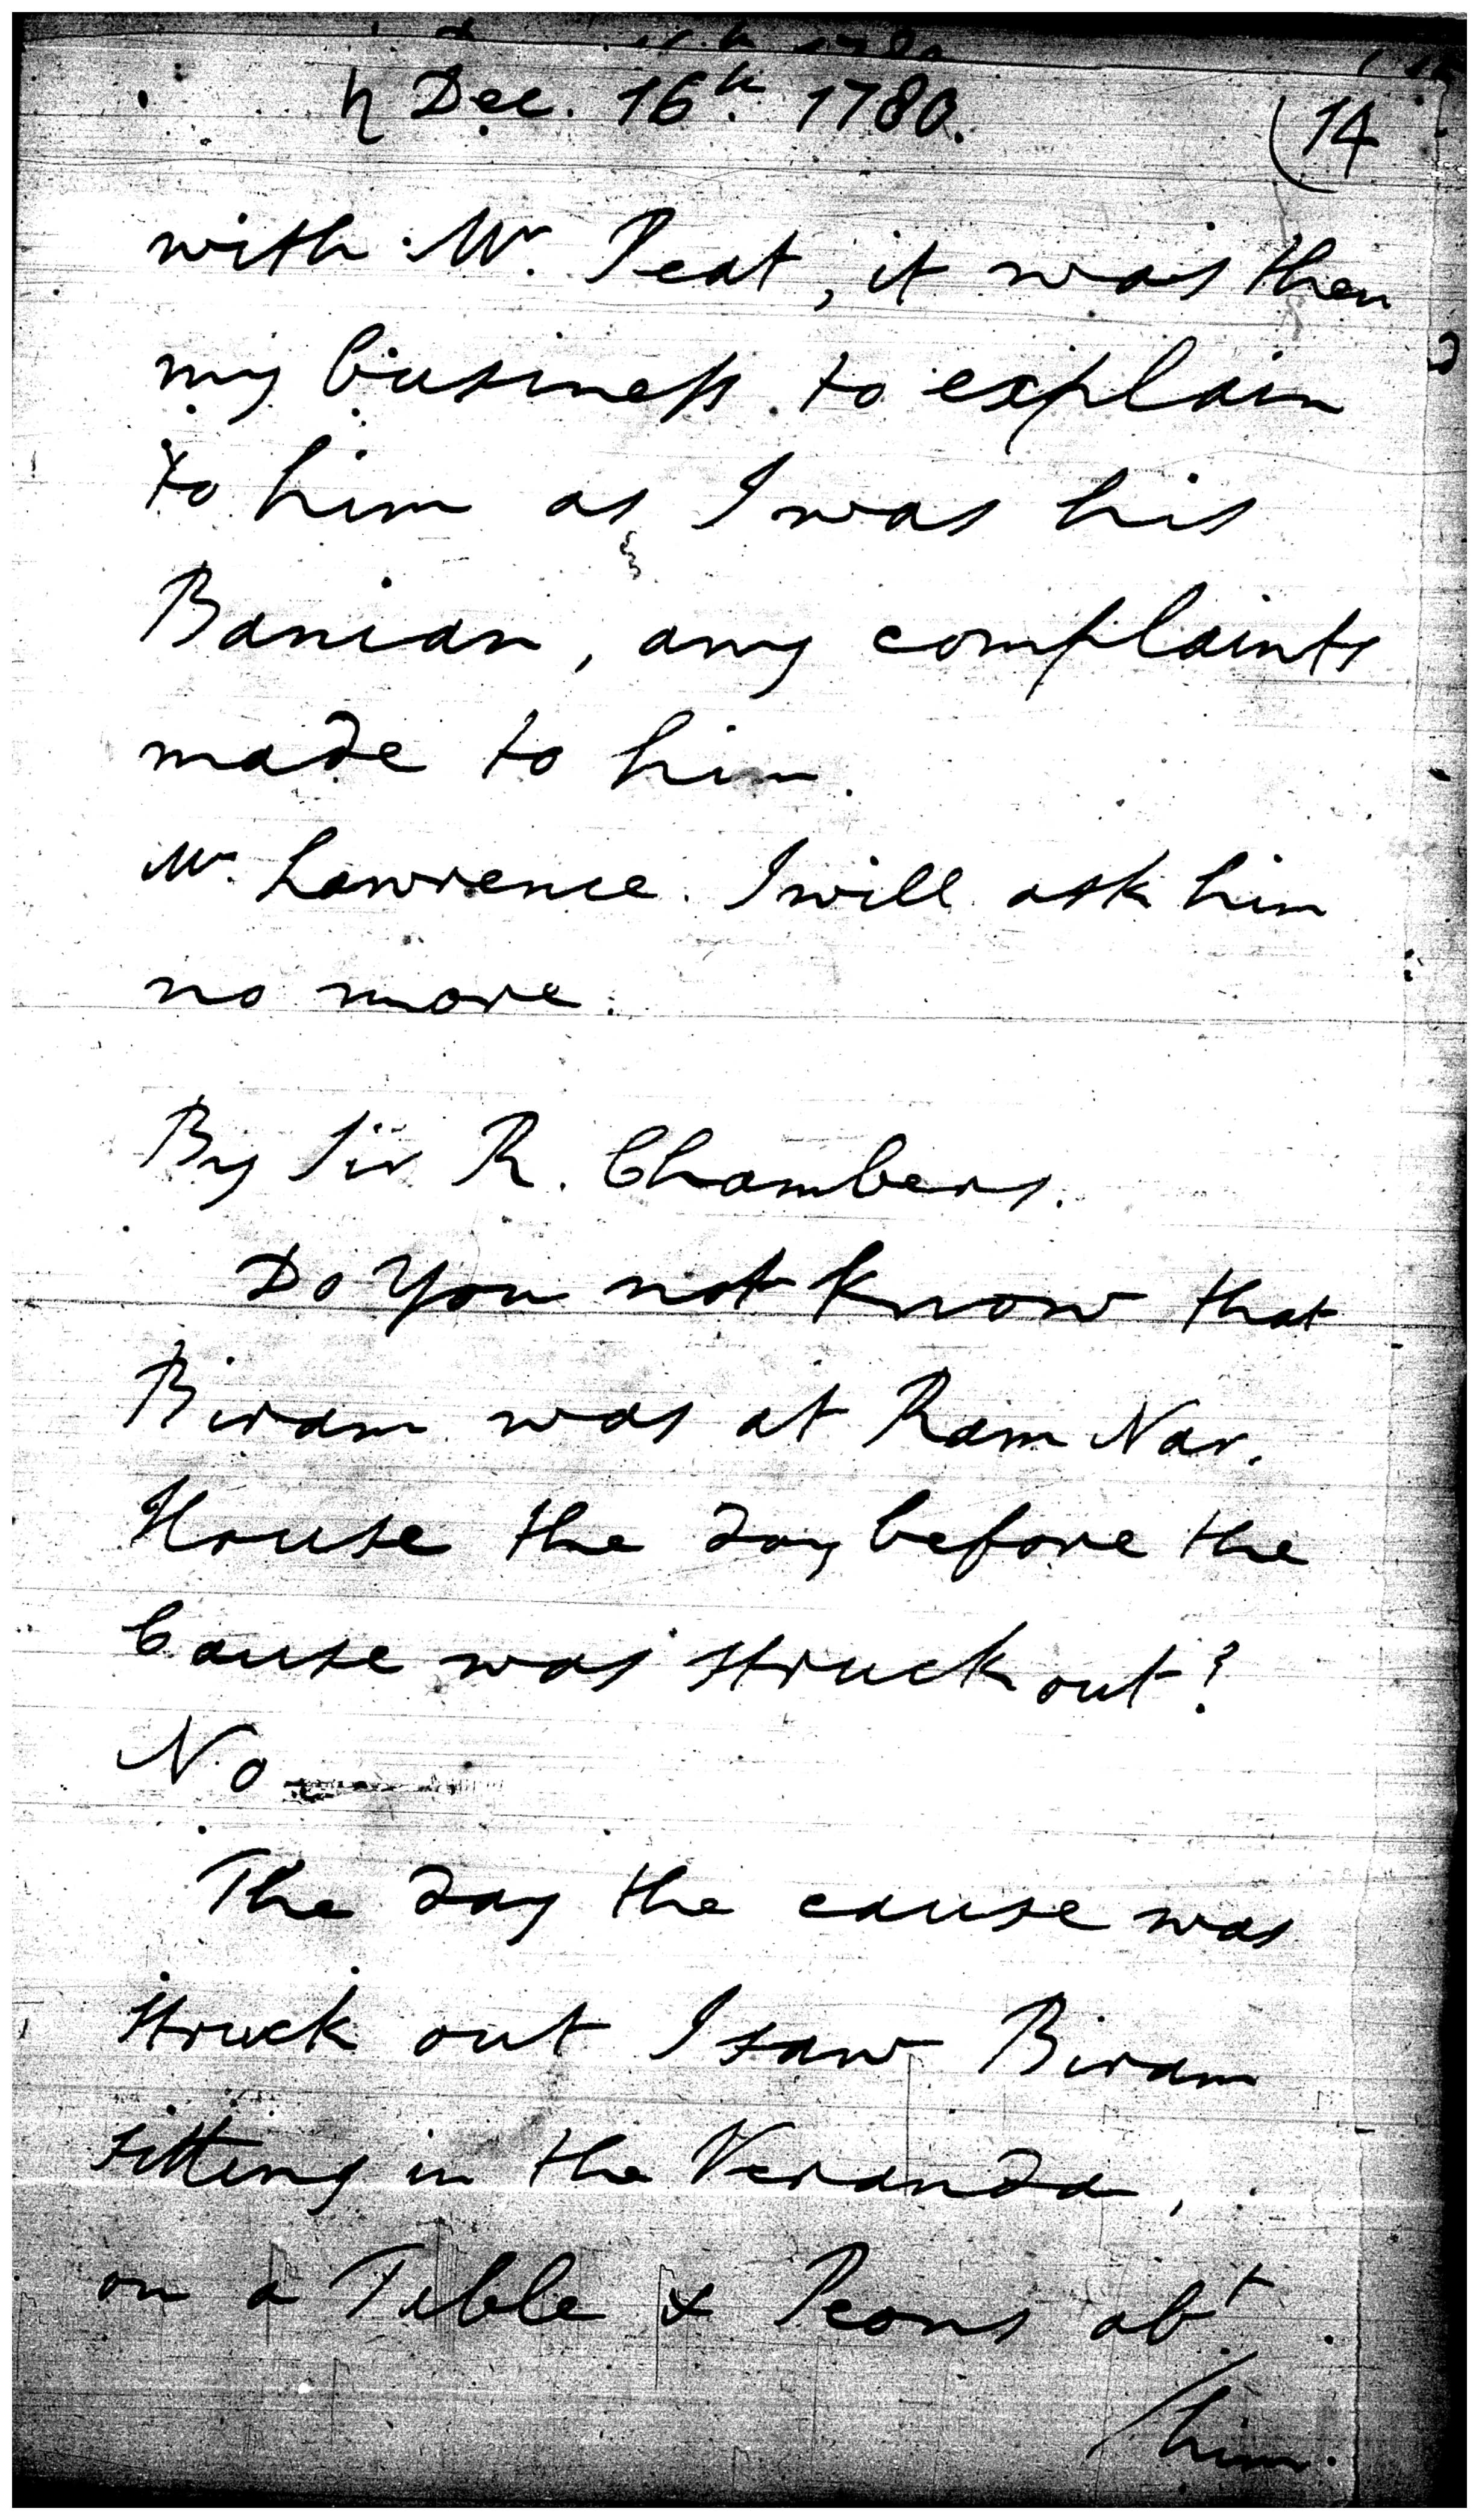 ♄ Dec. 16th. 1780. (14
with Mr. Peat, it was then
my business to explain
to him as I was his
Banian, any complaints
made to him.
Mr. Lawrence. I will ask him
no more.
By Sir R. Chambers.
Do You not know that
Biram was at Ram Nar.
House the day before the
Cause was struck out?
No
The day the cause was
struck out I saw Biram
sitting in the Veranda,
on a Table & Peons abt.
/him.